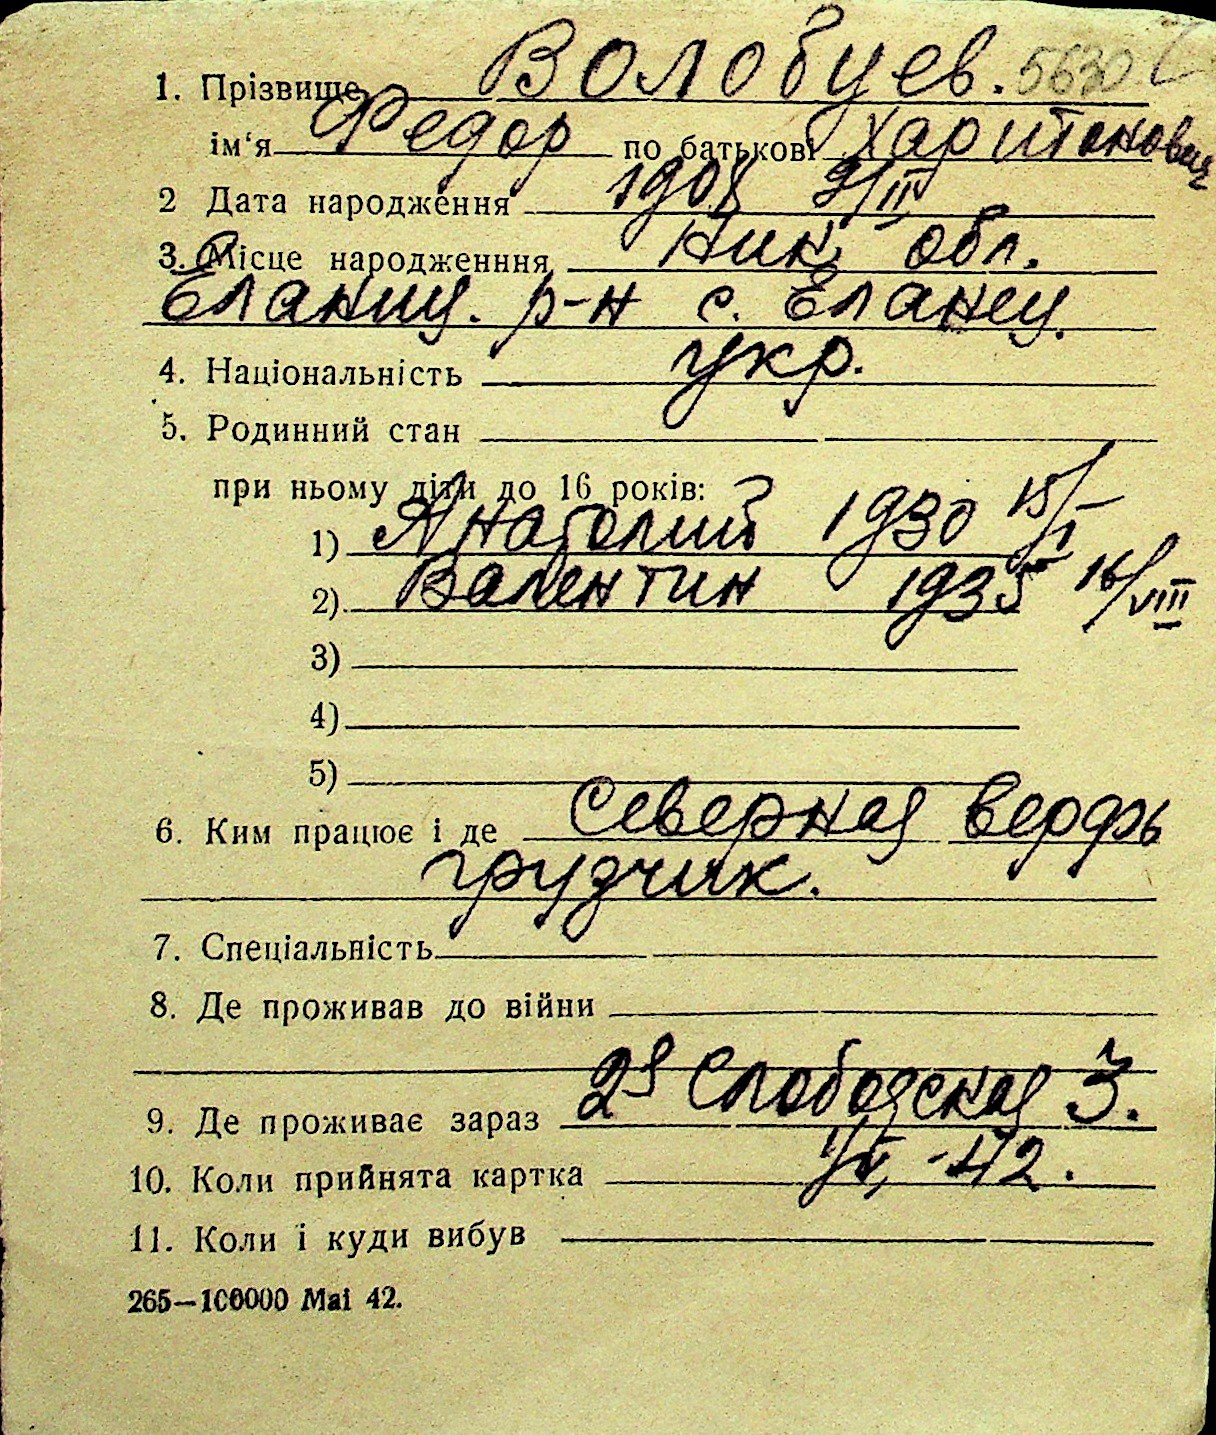 1. Прізвище Волобуев. 5630
ім'я Федор по батькові Харитонович
2 Дата народження 1908 9/III
3. Місце народженння Ник. обл.
Еланец. р-н с. Еланец.
4. Національність укр.
5. Родинний стан
при ньому діти до 16 років:
1) Анатолий 1930 15/I
2) Валентин 1935 16/VIII
3)
4)
5)
6. Ким працює і де Северная верфь
грузчик.
7. Спеціальність
8. Де проживав до війни
9. Де проживає зараз 2я Слободская 3.
10. Коли прийнята картка -42.
11. Коли і куди вибув
265—100000 Mai 42.